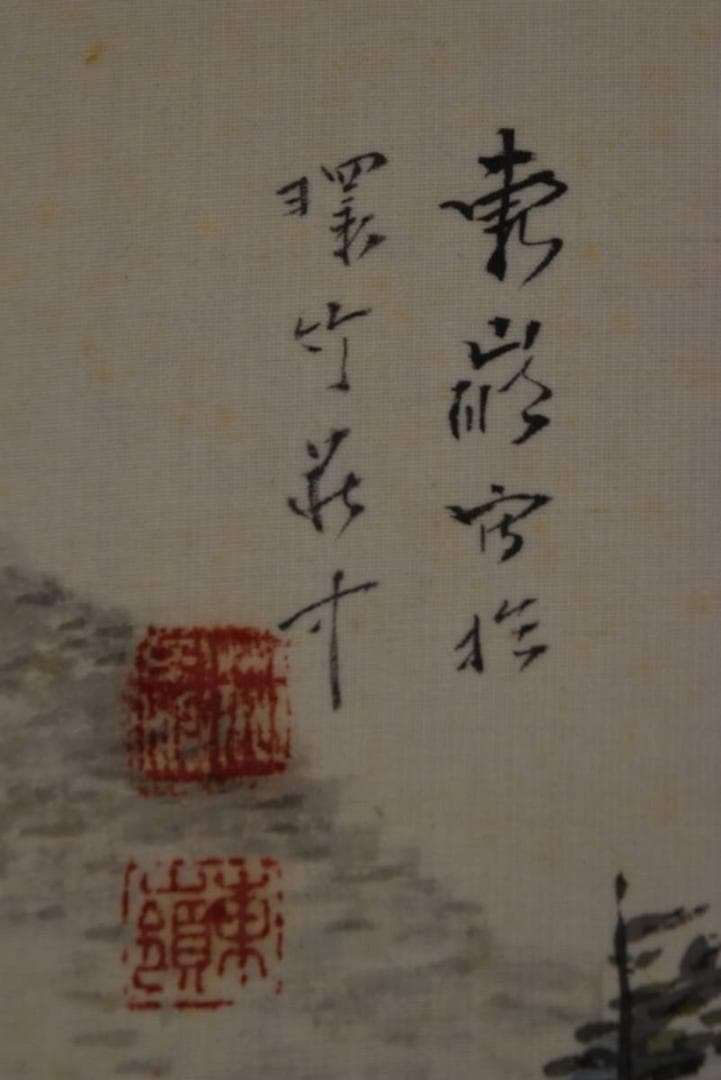 東嶺寫於
環竹莊中
東嶺